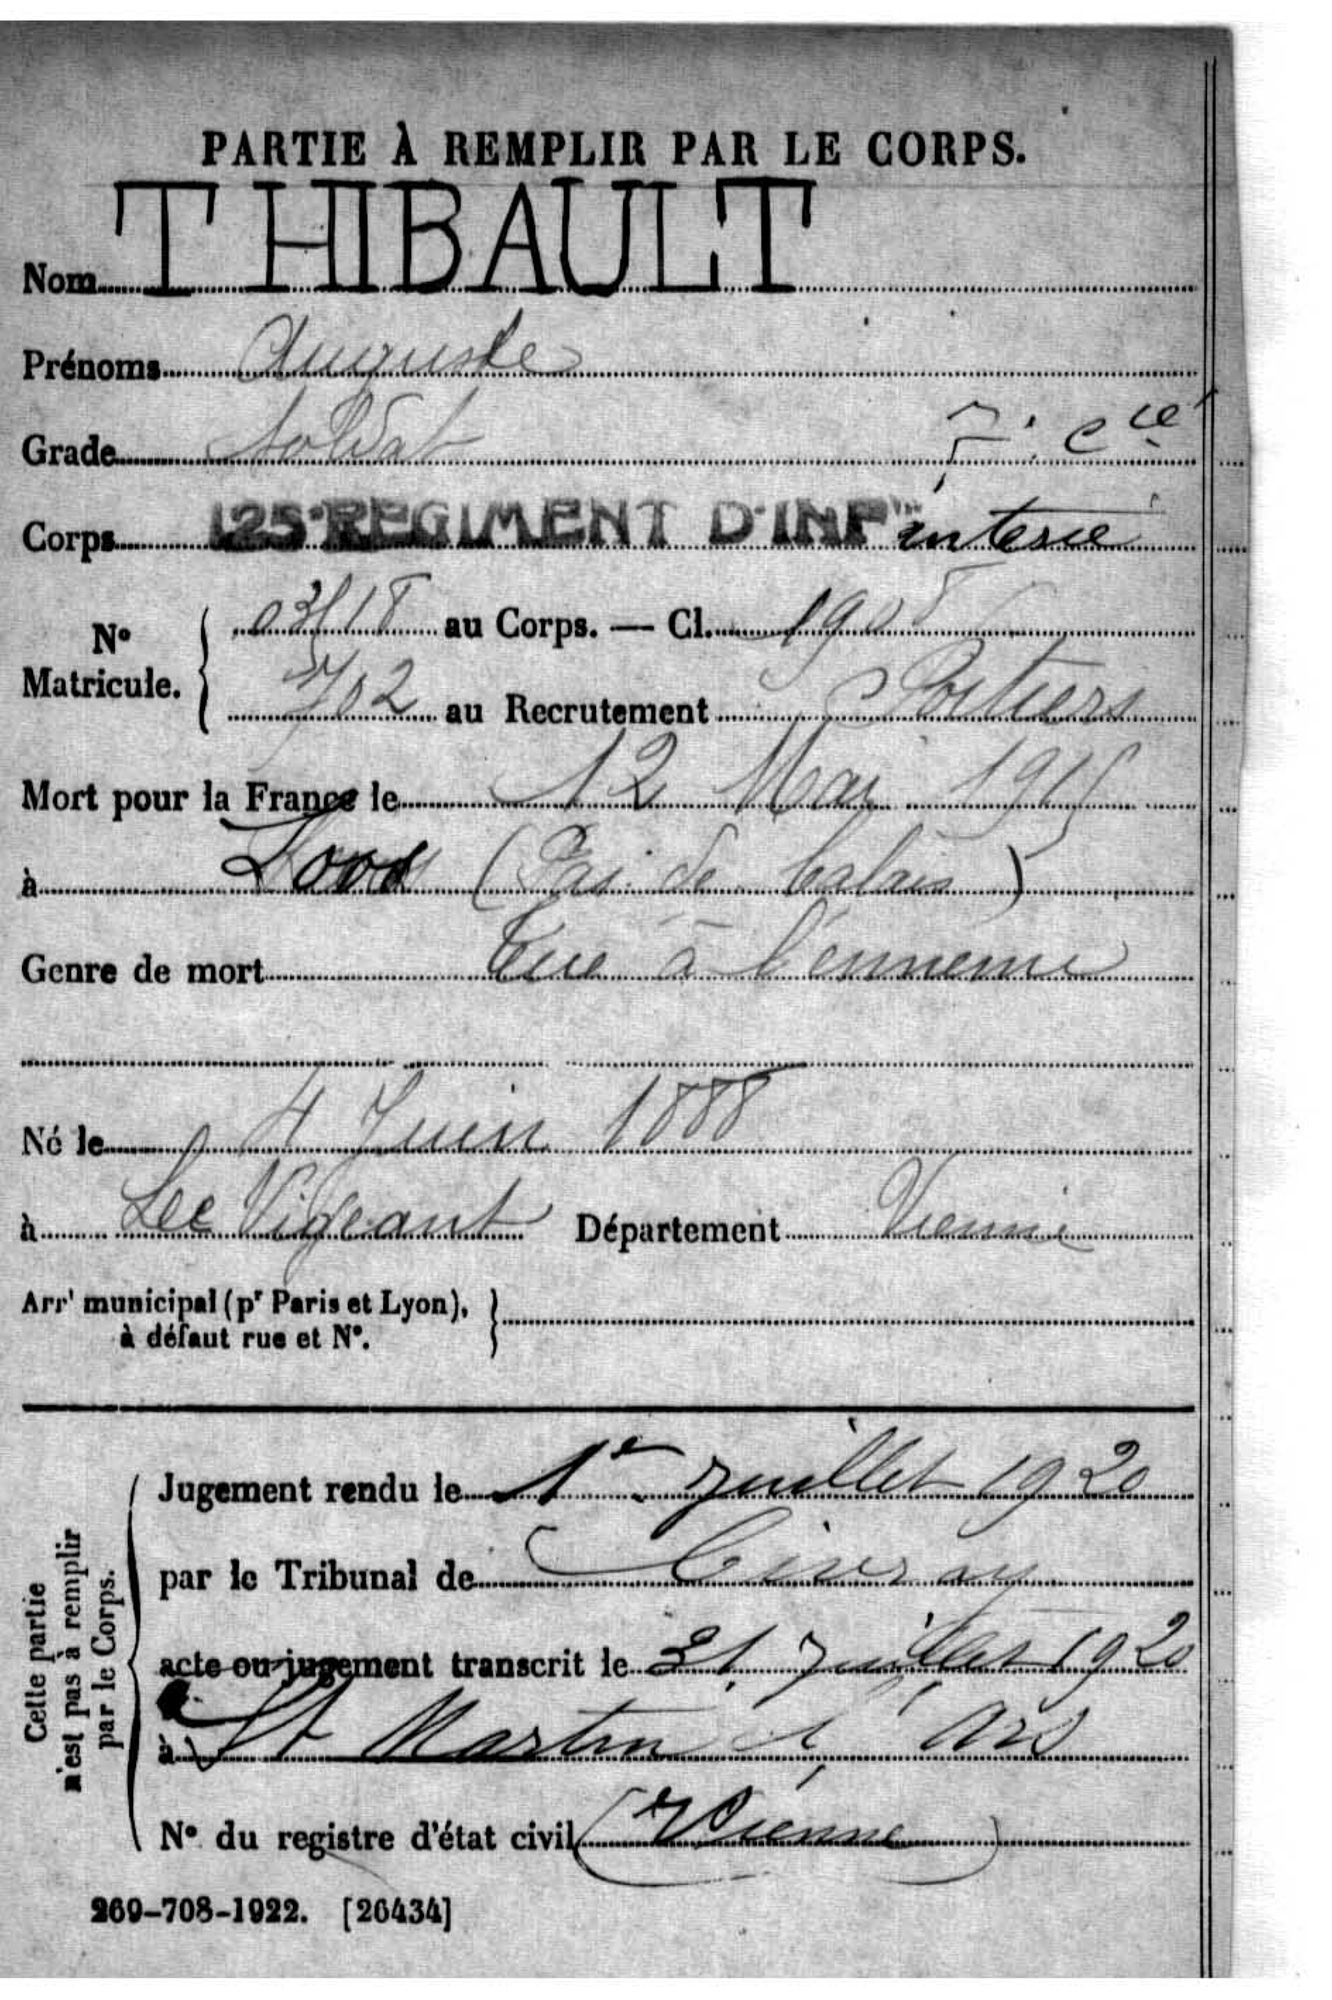 PARTIE À REMPLIR PAR LE CORPS.
Nom THIBAULT
Prénoms Auguste
Grade Soldat 7e Cie
Corps 125e REGIMENT D'INFanterie
N° Matricule. { 03118 au Corps. — Cl. 1908
702 au Recrutement Poitiers
Mort pour la France le 12 Mai 1915
à Loos (Pas de Calais)
Genre de mort Tué à l'ennemi
Né le 4 Juin 1888
à Le Vigeant Département Vienne
Arrt municipal (pr Paris et Lyon),
à défaut rue et N°.
Cette partie
n'est pas à remplir
par le Corps.
Jugement rendu le 1er Juillet 1920
par le Tribunal de Civray
acte ou jugement transcrit le 31 Juillet 1920
à St Martin l'Ars
N° du registre d'état civil (Vienne)
269-708-1922. [26434]